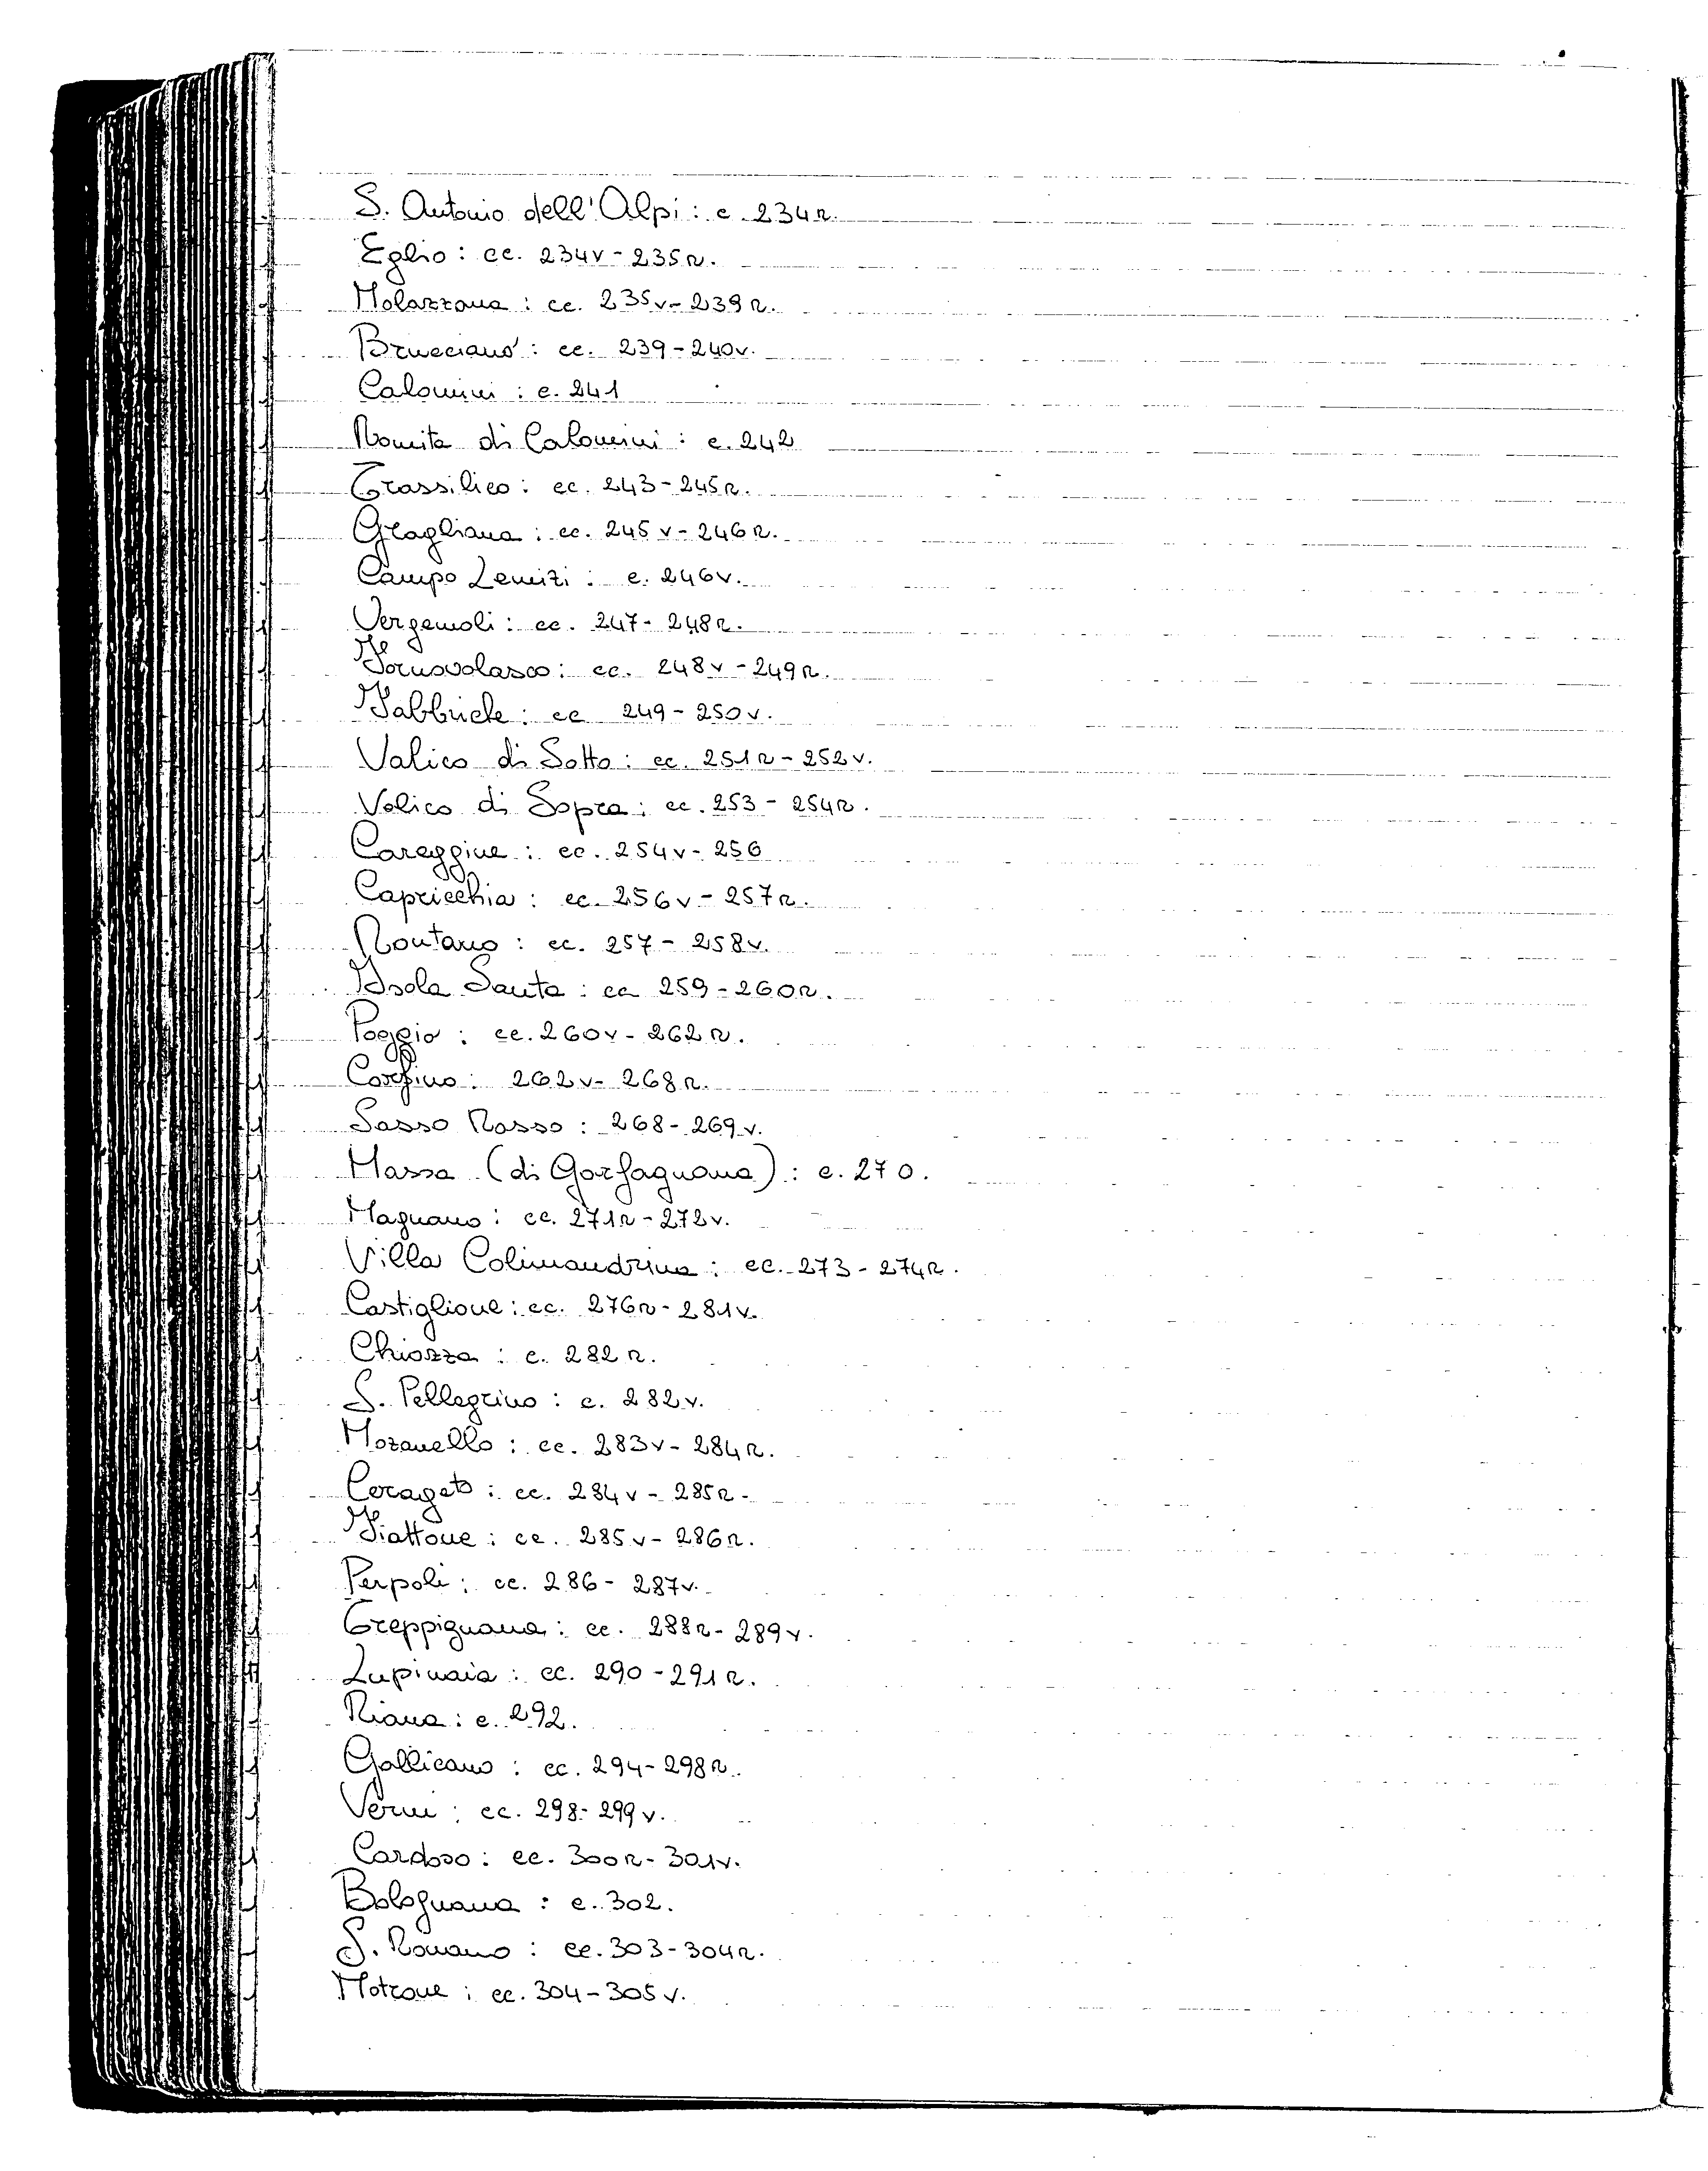 S. Antonio dell'Alpi: c. 234r.
Eglio: cc. 234v-235r.
Molazzana: cc. 235v-239r.
Brucciano: cc. 239-240v.
Calomini: c. 241
Romita di Calomini: c. 242
Trassilico: cc. 243-245r.
Gragliana: cc. 245v-246r.
Campo Lemizi: c. 246v.
Vergemoli: cc. 247-248r.
Fornovolasco: cc. 248v-249r.
Fabbriche: cc 249-250v.
Valico di Sotto: cc. 251r-252v.
Valico di Sopra: cc. 253-254r.
Careggine: cc. 254v-256
Capricchia: cc. 256v-257r.
Rontano: cc. 257-258v.
Isola Santa: cc 259-260r.
Poggio: cc. 260v-262r.
Corfino: 262v-268r.
Sasso Rosso: 268-269v.
Massa (di Garfagnana): c. 270.
Magnano: cc. 271r-272v.
Villa Colimandrina: cc. 273-274r.
Castiglione: cc. 276r-281v.
Chiozza: c. 282r.
S. Pellegrino: c. 282v.
Mozanello: cc. 283v-284r.
Cerageto: cc. 284v-285r-
Fiattone: cc. 285v-286r.
Perpoli: cc. 286-287v.
Treppignana: cc. 288r-289v.
Lupinaia: cc. 290-291r.
Riana: c. 292.
Gallicano: cc. 294-298r.
Verni: cc. 298-299v.
Cardoso: cc. 300r-301v.
Bolognana: c. 302.
S. Romano: cc. 303-304r.
Motrone: cc. 304-305v.